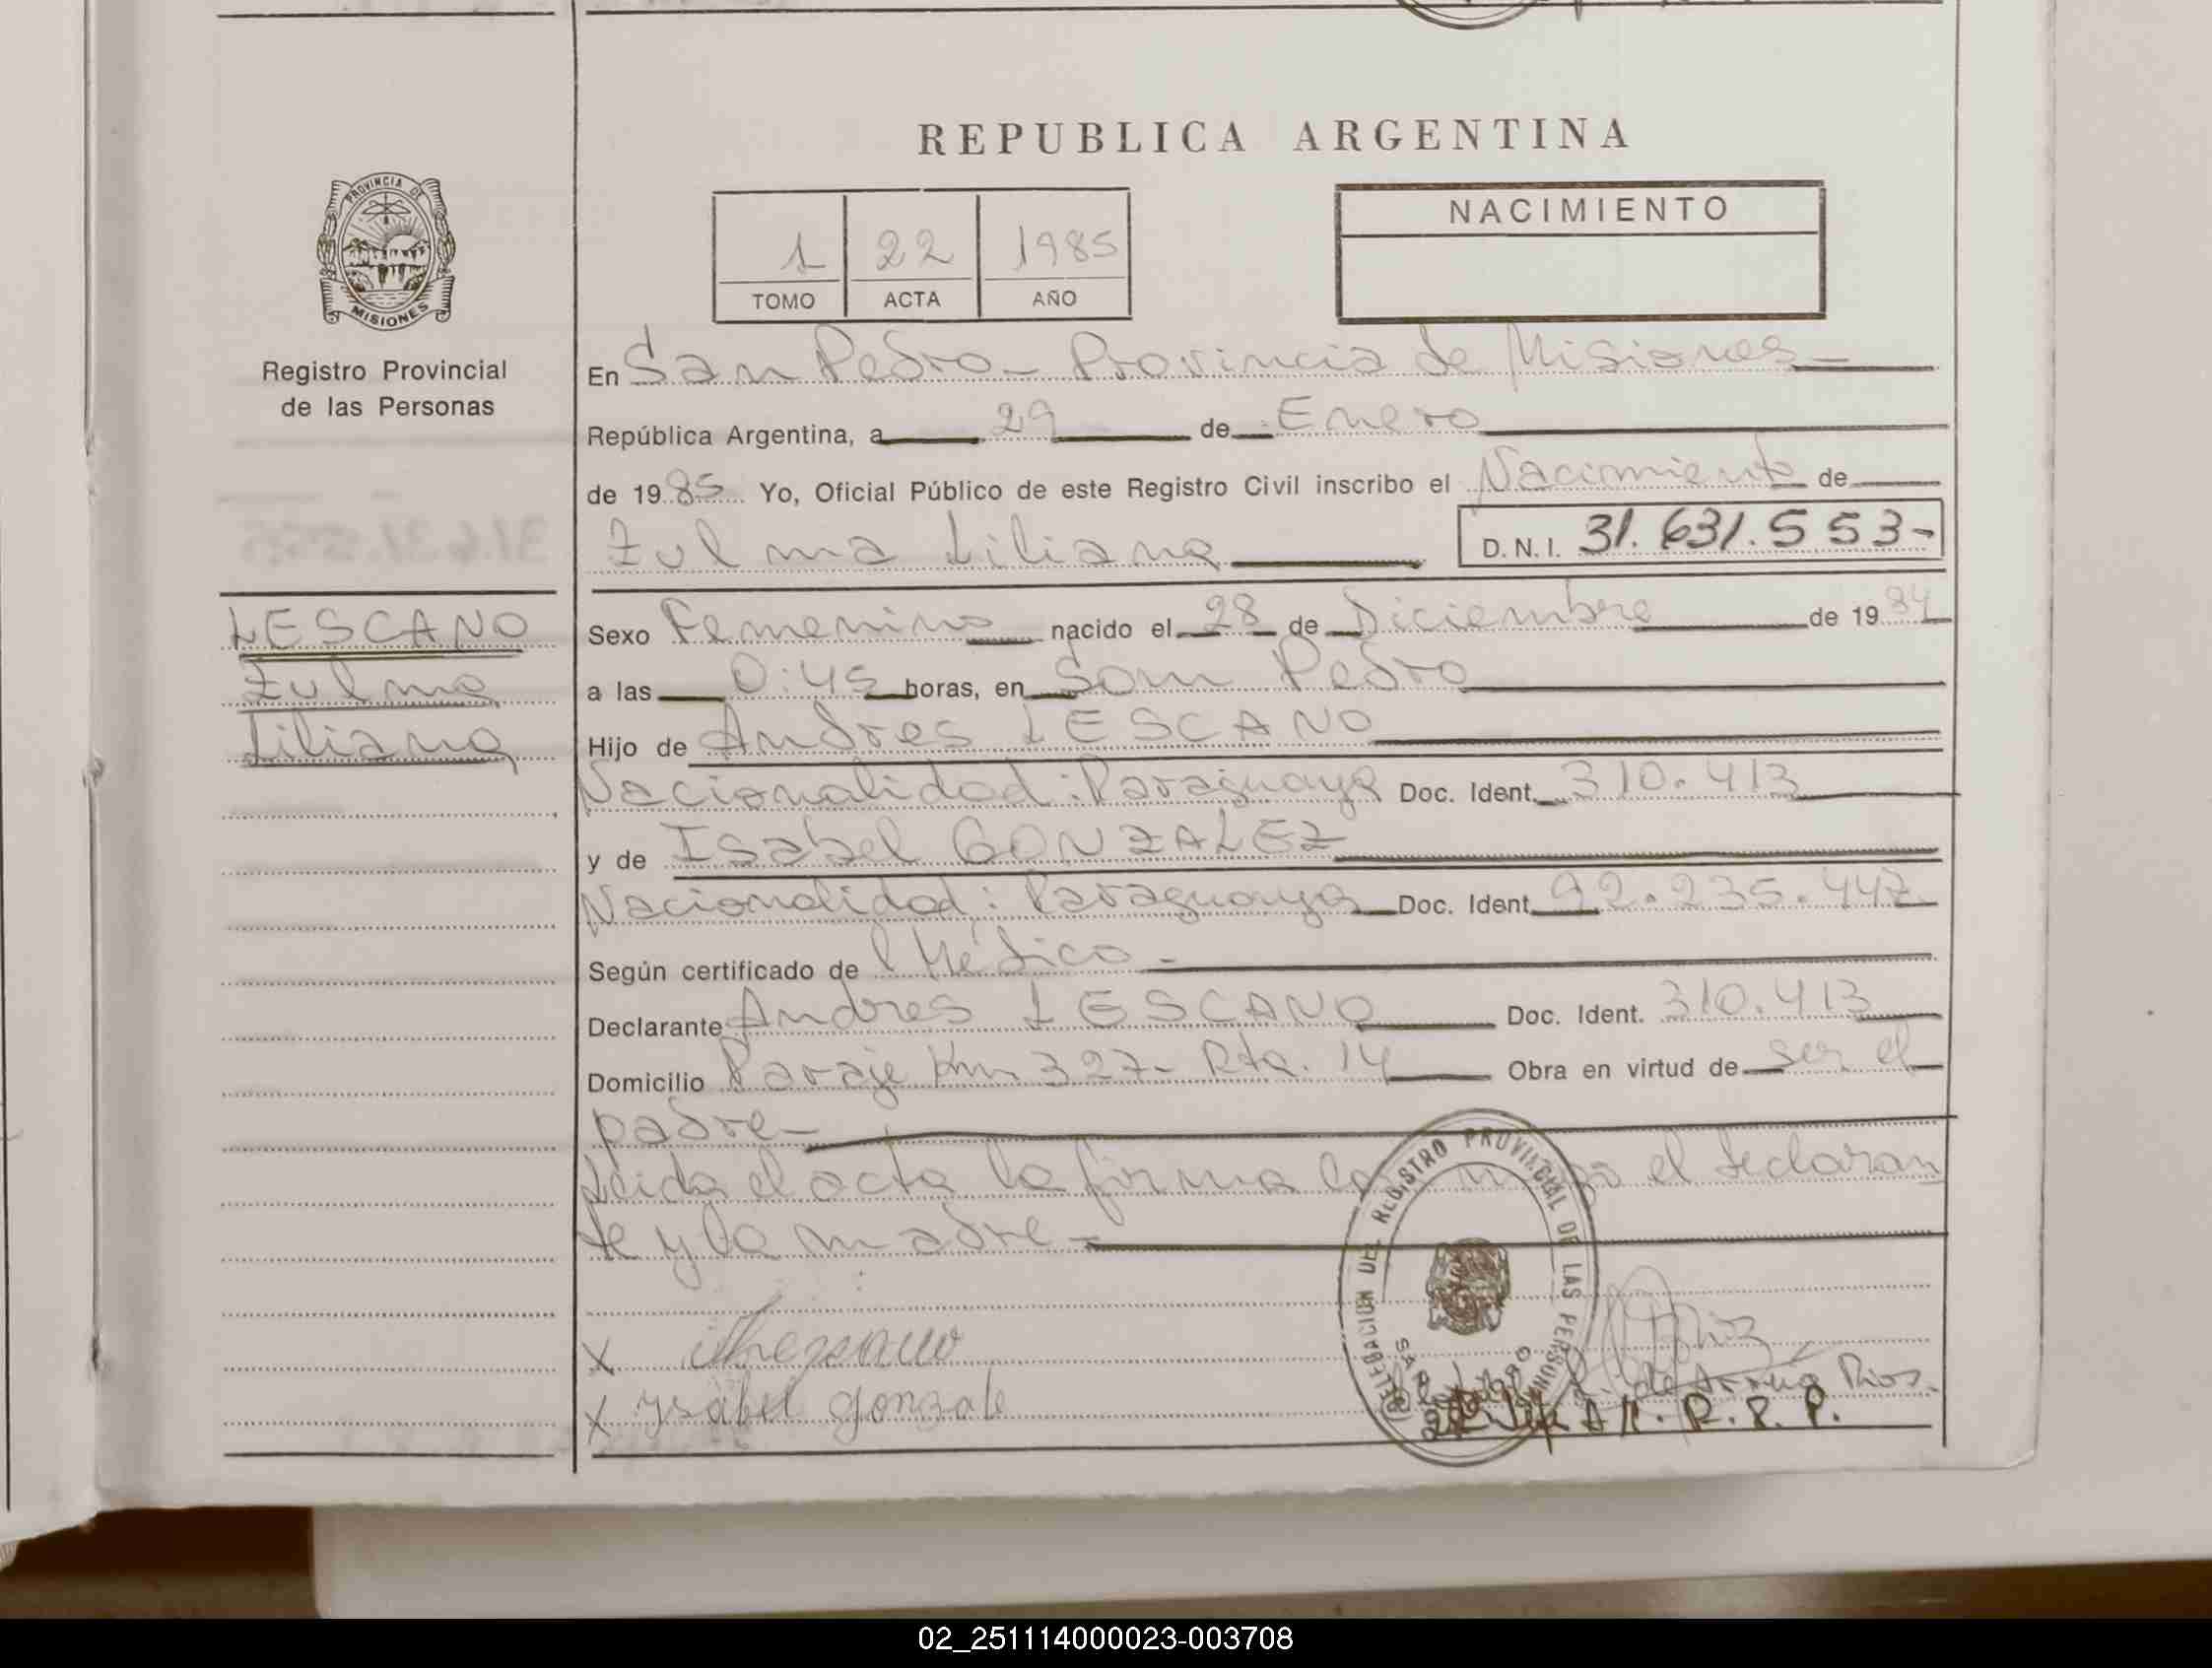 REPUBLICA ARGENTINA
PROVINCIA DE
MISIONES
Registro Provincial
de las Personas
1 22 1985
TOMO ACTA AÑO
NACIMIENTO
En San Pedro - Provincia de Misiones -
República Argentina, a 29 de Enero
de 1985 Yo, Oficial Público de este Registro Civil inscribo el Nacimiento de
Zulma Liliana
D. N. I. 31.631.553-
LESCANO
Zulma
Liliana
Sexo Femenino nacido el 28 de Diciembre de 1984
a las 0:45 horas, en San Pedro
Hijo de Andres LESCANO
Nacionalidad: Paraguaya Doc. Ident. 310.413
y de Isabel GONZALEZ
Nacionalidad: Paraguaya Doc. Ident. 92.235.447
Según certificado de l Médico -
Declarante Andres LESCANO Doc. Ident. 310.413
Domicilio Paraje Km 327- Rta. 14 Obra en virtud de ser el
padre -
Leida el acta la firma con migo el declaran
te y la madre -
DELEGACION DEL REGISTRO PROVINCIAL DE LAS PERSONAS
SAN PEDRO
X
X Ysabel gonzale
de Rios.
R. P. P.
02_251114000023-003708